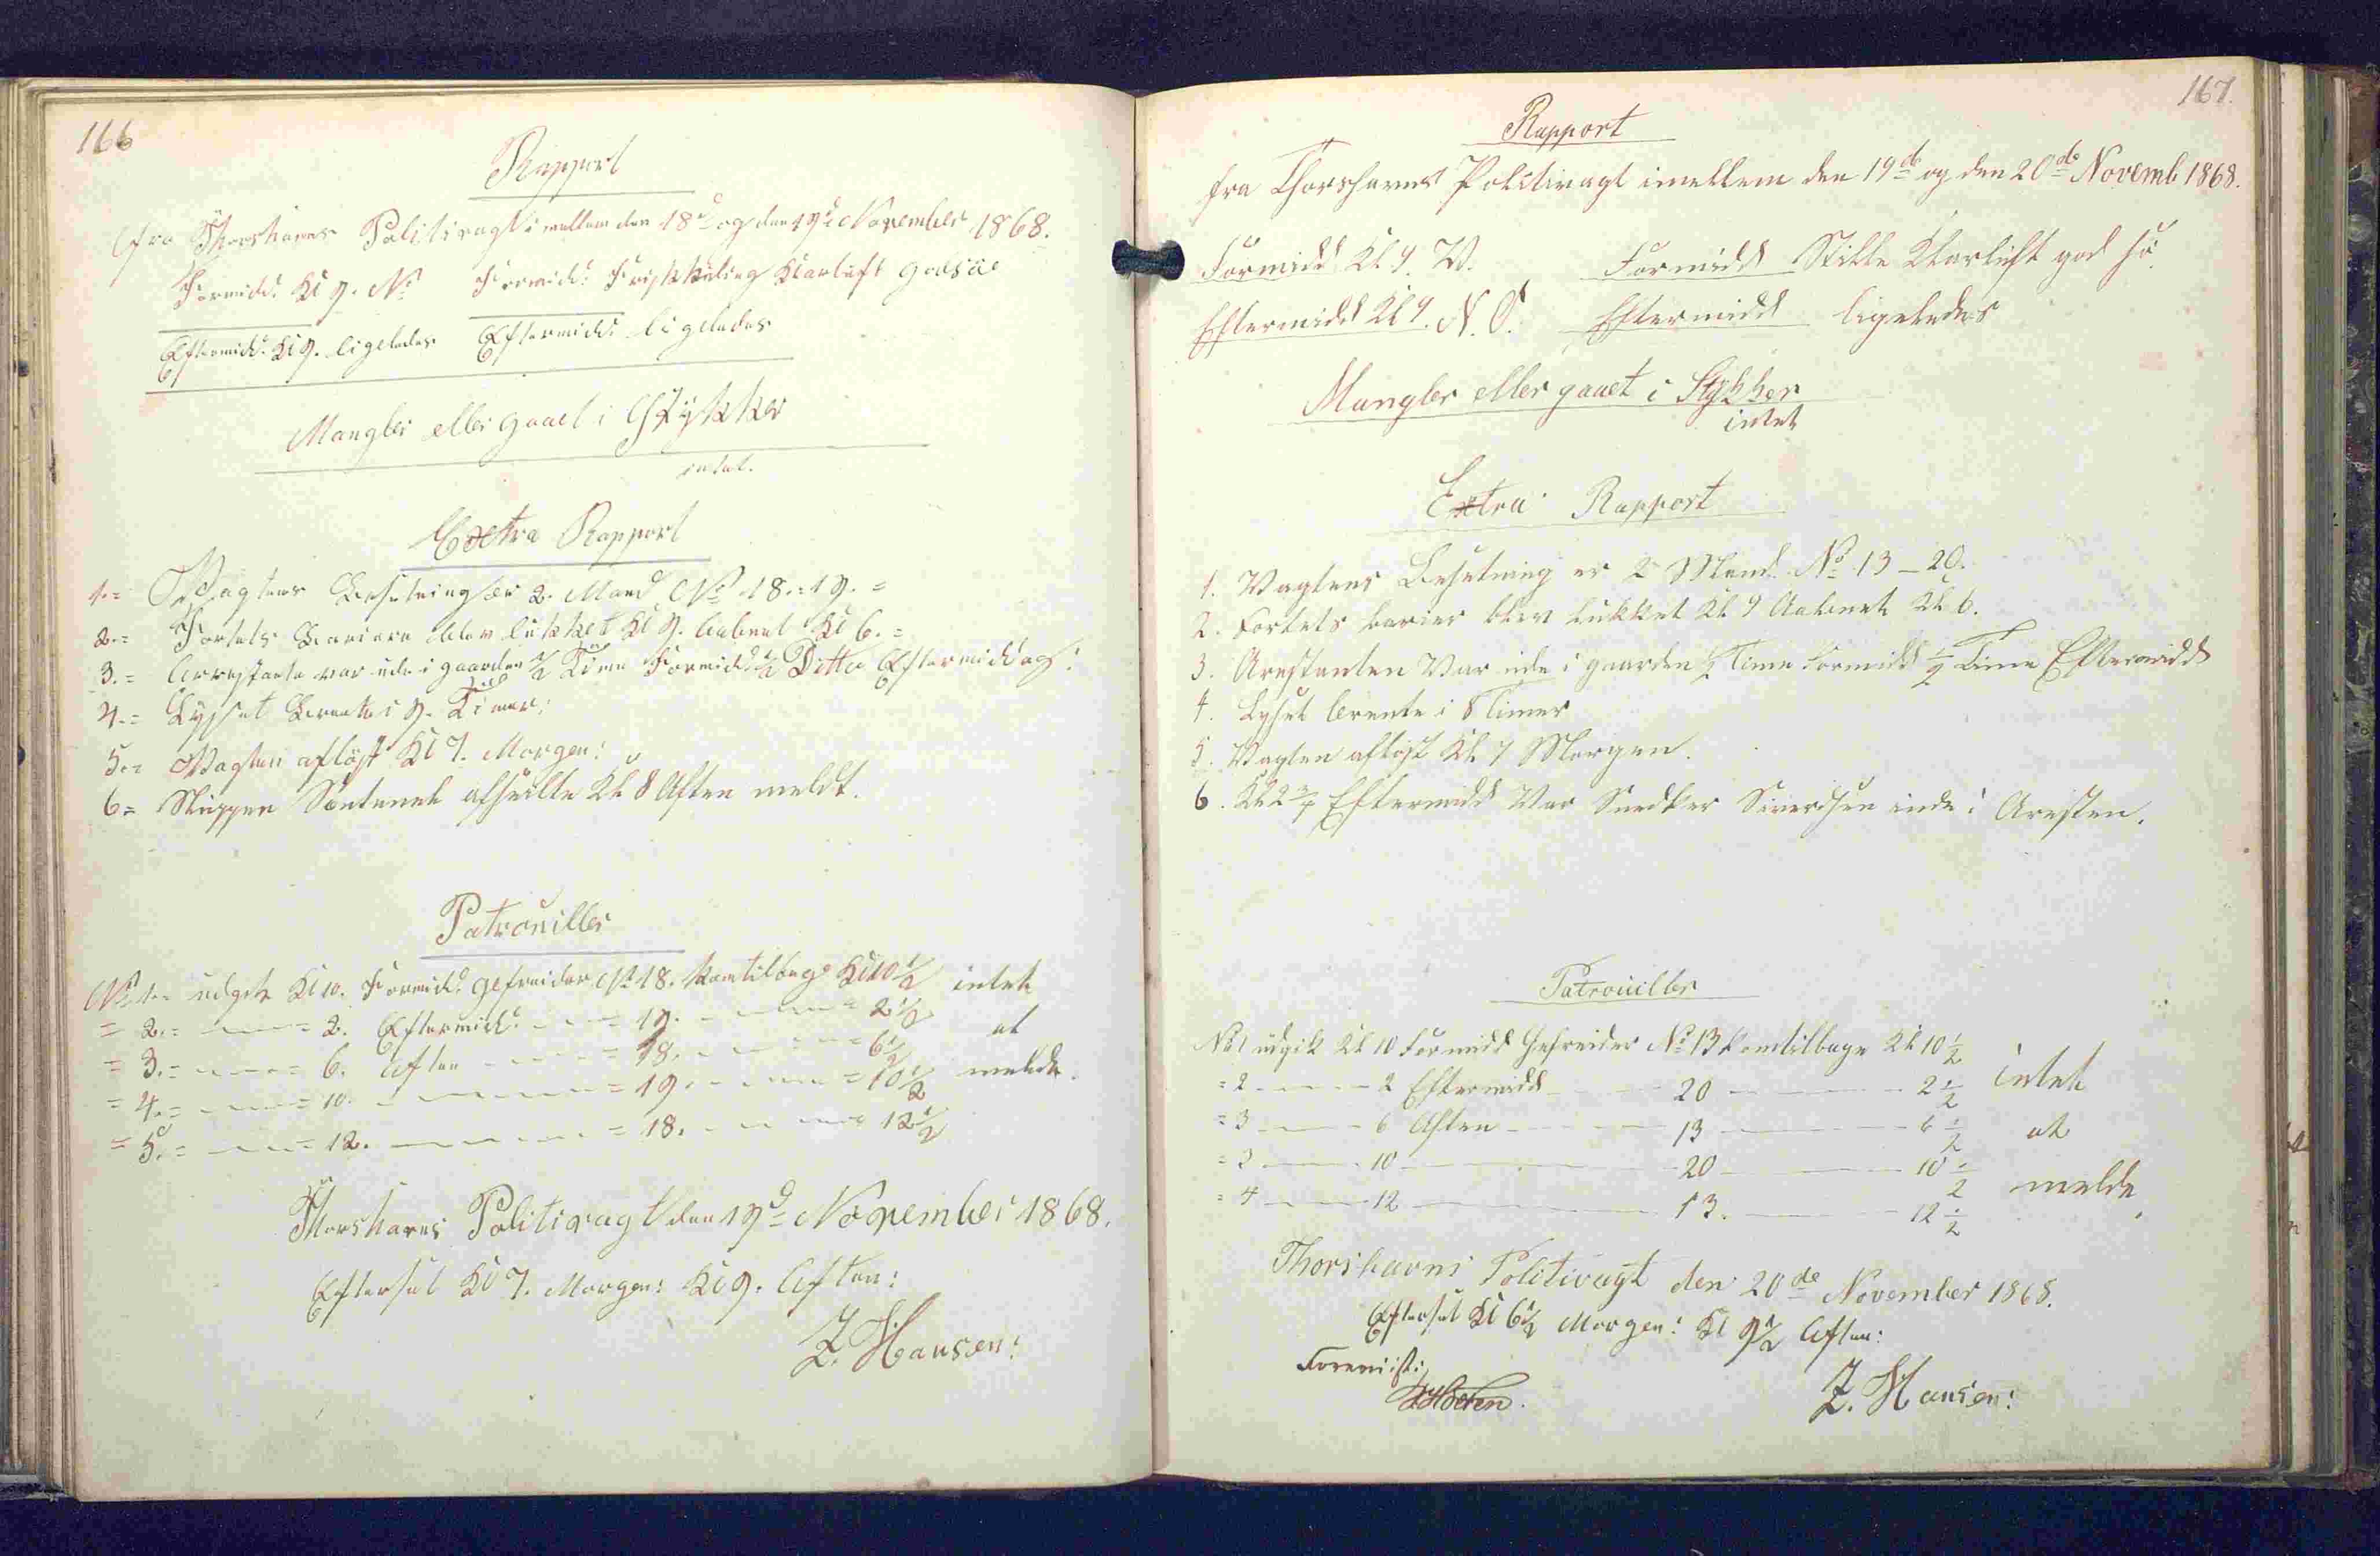 166
Rapport
fra Thorshavns Politivagt imellem den 18d og den 19d November 1868.
Formidd. Kl 9. No Formidd: Friskkuling Klarluft godsöe
Eftermidd. Kl 9. ligeledes Eftermidd. ligeledes
Mangler eller gaaet i Stykker
intet.
Extra Rapport
1.= Vagtens Besetning er 2. Mand No 18.=19.=
2.= Fortets Bariere blev lukket Kl 9. Aabnet Kl 6.=
3.= Arrestante var ude i gaarden 1/2 Time Formidd 1/2 Ditto Eftermiddag:
4.= Lyset Brente i 9. Timer:
5.= Vagten aflöst Kl 7. Morgen:
6= Skipper afseilte Kl 8 Aften meldt.
Patrouiller
No 1.= udgik Kl 10. Formidd. gefreider No 18. kom tilbage Kl 10 1/2 intet
= 2.= = 2. Eftermidd. = 19. = 2 1/2 at
= 3.= = 6. Aften = 18. = 6 1/2 melde.
= 4.= = 10. = 19. = 10 1/2
= 5.= = 12. = 18. = 12 1/2
Thorshavns Politivagt den 19d November 1868.
Efterset Kl 7. Morgen: Kl 9. Aften:
Z. Hansen:
167.
Rapport
fra Thorshavns Politivagt imellem den 19de og den 20de Novemb 1868.
Formidd Kl 9. V. Formidd Stille Klarluft god sö
Eftermidd Kl 9. N.O. Eftermidd ligeledes
Mangler eller gaaet i Stykker
intet
Extra Rapport
1. Vagtens Besetning er 2 Mand No 13–20.
2. Fortets barier blev lukket Kl 9 Aabnet Kl 6.
3. Arestanten Var ude i gaarden 1/2 Time Formidd 1/2 Time Eftermidd
4. Lyset brente i 8 Timer
5. Vagten aflöst Kl 7 Morgen.
6. Kl 2 3/4 Eftermidd Var Snedker Sivertsen inde i Aresten.
Patrouiller
No 1 udgik Kl 10 Formidd Gefreider No 13 kom tilbage Kl 10 1/2
= 2 2 Eftermidd 20 2 1/2 intet
= 3 6 Aften 13 6 1/2 at
= 3 10 20 10 1/2 melde.
= 4 12 13. 12 1/2
Thorshavns Politivagt den 20de November 1868.
Efterset Kl 6 1/2 Morgen: Kl 9 1/2 Aften:
Foreviist:
Z. Hansen: